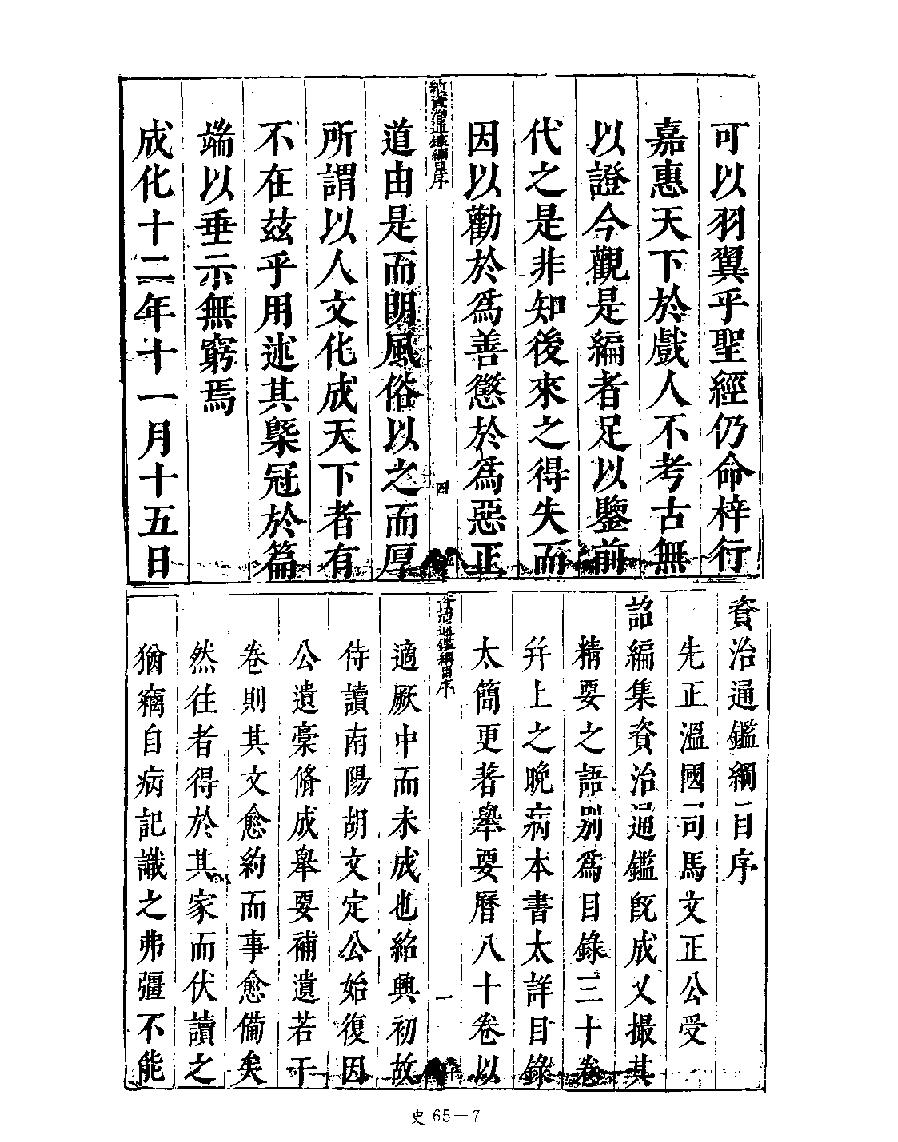 可以羽翼乎聖經仍命梓行
嘉惠天下於戲人不考古無
以證今觀是編者足以鑒前
代之是非知後來之得失而
因以勸於爲善懲於爲惡正
四
道由是而明風俗以之而厚
所謂以人文化成天下者有
不在茲乎用述其槩冠於篇
端以垂示無窮焉
成化十二年十一月十五日
資治通鑑綱目序
先正溫國司馬文正公受
詔編集資治通鑑既成又撮其
精要之語別爲目錄三十卷
幷上之晚病本書太詳目錄
太簡更著舉要曆八十卷以
資治通鑑綱目序
一
適厥中而未成也紹興初故
侍讀南陽胡文定公始復因
公遺槀脩成舉要補遺若干
卷則其文愈約而事愈備矣
然往者得於其家而伏讀之
猶竊自病記識之弗彊不能
史65—7